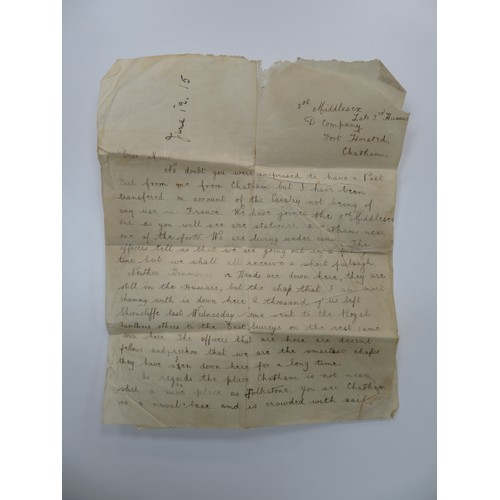 June 18. 15
Middlesex
Late 3rd Hussars
D Company
Fort Horsted
Chatham
Dear
No doubt you were surprised to have a Post
Card from me from Chatham but I have been
transfered on account of the Cavalry not being of
any use in France. We have joined the Middlesex
and as you will see are stationed at Chatham near
one of the forts. We are living under The
officers tell us that we are going out in a
time but we shall all receive a short furlough
Neither or Hinds are down here, they are
still in the Hussars, but the chap that I am more
chummy with is down here. A thousand of us left
Shorncliffe last Wednesday, some went to the Royal
others to the East Surreys and the rest came
down here. The officers that are here are decent
fellows and reckon that we are the smartest chaps
they have seen down here for a long time.
As regards the place Chatham is not near
such a nice place as Folkstone. You see Chatham
is a naval base and is crowded with sail.